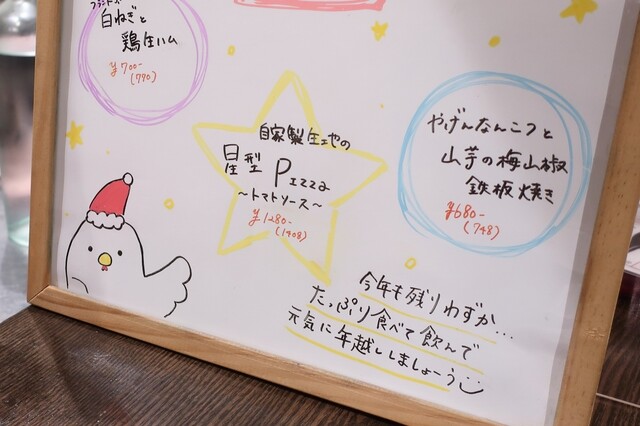 白ねぎと
鶏生ハム
¥700-
(770)
自家製生地の
星型 Pizza
~トマトソース~
¥1280-
(1408)
やげんなんこつと
山芋の梅山椒
鉄板焼き
¥680-
(748)
今年も残りわずか...
たっぷり食べて飲んで
元気に年越ししましょーう